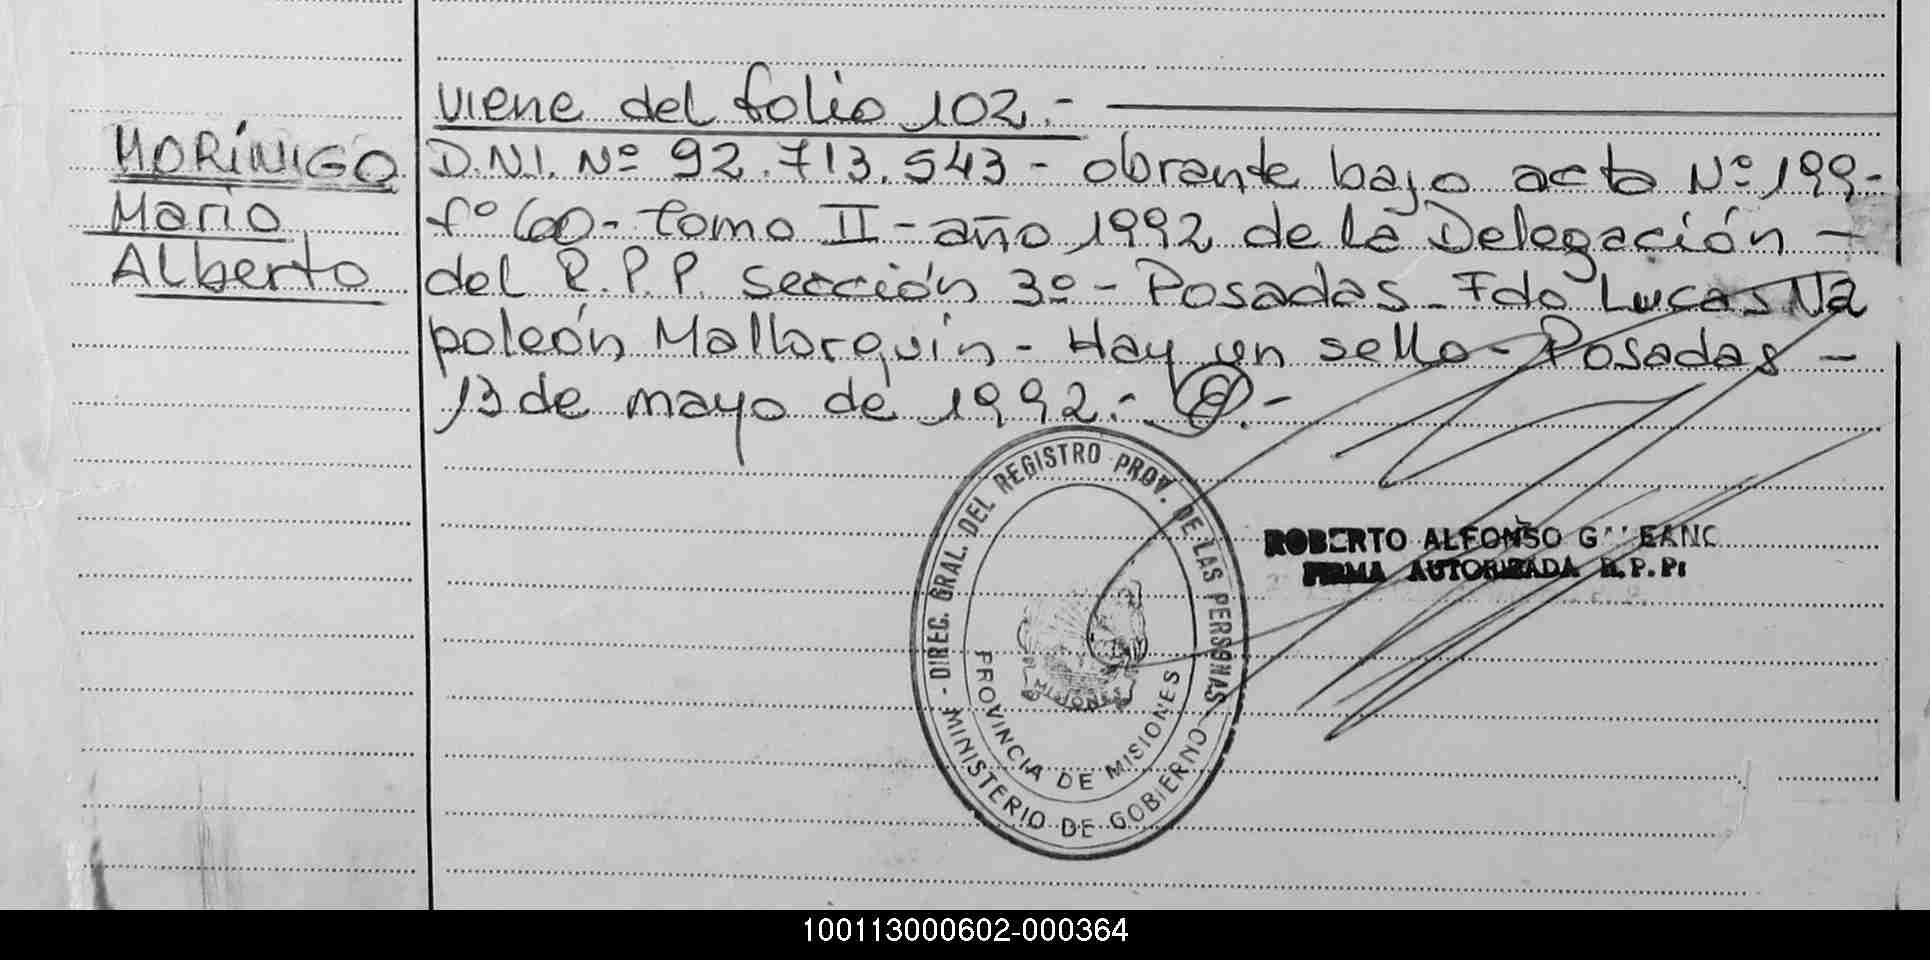 viene del folio 102.-
MORÍNIGO
Mario
Alberto
D.N.I. Nº 92.713.543 - obrante bajo acta Nº 199-
fº 60 - tomo II - año 1992 de la Delegación -
del R.P.P. sección 3º - Posadas - Fdo Lucas Na
poleón Mallorquín - Hay un sello - Posadas -
13 de mayo de 1992.-
- DIREC. GRAL. DEL REGISTRO PROV. DE LAS PERSONAS -
MINISTERIO DE GOBIERNO
PROVINCIA DE MISIONES
MISIONES
ROBERTO ALFONSO
FIRMA AUTORIZADA R.P.P.
100113000602-000364